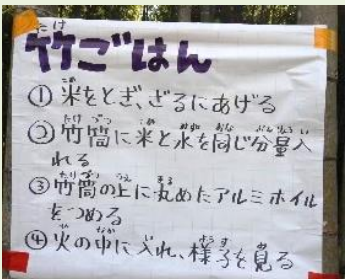 竹ごはん
①米をとぎ、ざるにあげる
②竹筒に米と水を同じ分量入
れる
③竹筒の上に丸めたアルミホイル
をつめる
④火の中に入れ、様子を見る